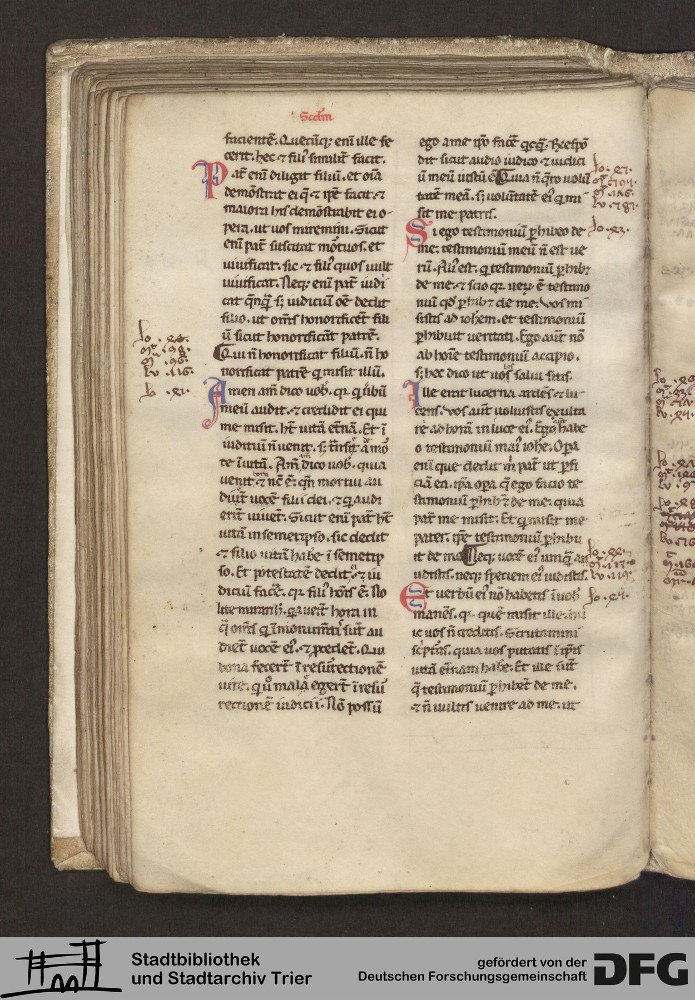 Scdm
facientē. Quecūq; enī ille fe
cerit. hec ⁊ fili᷒ similit̄ facit.
Pat̄ enī diligit filiū. et oīa
demōstrat ei q̄ ⁊ ip̄e facit. ⁊
maiora his demōstrabit ei o
pera. ut uos miremini. Sicut
enī pat̄ suscitat mōtuos. et
uiuificat. sic ⁊ fili᷒ quos uult
uiuificat. Neq; enī pat̄ iudi
cat q̄nq̄ s; iudiciū oē dedit
filio. ut om̄s honorificēt fili
ū sicut honorificāt patrē.
Qui n̄ honorificat filiū. n̄ ho
norificat patrē q̄ misit illū.
Amen am̄ dico uob̄. qr̄ q̄ ūbū
meū audit. ⁊ credidit ei qui
me misit. ht̄ uitā et̄nā. Et ī
iudiciū n̄ uenit. s; t̄nsiit a mo
te ī uitā. Am̄ dico uob̄. quia
uenit hora ⁊ nc̄ ē. qn̄ mortui au
diūt uocē filii dei. ⁊ q̄ audi
erīt uiuēt. Sicut enī pat̄ ht̄
uitā in semetip̄so. sic dedit
⁊ filio uitā habe᷑ ī semetip̄
so. Et potestatē dedit ei ⁊ iu
diciū face᷑. qr̄ fili᷒ hoīs ē. No
lite mirari h̄. q̄ ueīt hora in
q̄ om̄s q̄ ī monumētis sūt au
diēt uocē ei᷒. ⁊ p̄cedēt. Qui
bona fecert̄ ī resurrectionē
uite. q̄ u᷒ mala egert̄ ī resu
rectionē iudicii. Nō possū
ego a me ip̄o face᷑ q̄cq̄. S; 
dit sicut audio iudico ⁊ iudici
ū meū iustū ē. Quia n̄ q̄ro uolū
tatē meā. s; uolūtatē ei᷒ q̄ mi
sit me patris.
Si ego testimoniū p̄hibeo de
me. testimoniū meū n̄ est ue
rū. Ali᷒ est. q̄ testimoniū p̄hib;
de me. ⁊ scio qr̄ uerū ē testimo
niū qd̄ p̄hib; de me. Uos mi
sistis ad ioh̄em. et testimoniū
p̄hibuit ueritati. Ego aut̄ nō
ab hoīe testimoniū accipio.
s; hec dico ut uos salui sitis.
Ille erat lucerna ardēs ⁊ lu
cens. Uos aut̄ uoluistis exulta
re ad horā in luce ei᷒. Ego aut̄ habe
o testimoniū mai᷒ ioh̄e. Opa
enī que dedit m̄ pat̄ ut p̄fi
ciā ea. ip̄a opa q̄ ego facio te
stimoniū p̄hib; de me. quia
pat̄ me misit. Et q̄ misit me
pater. ip̄e testimoniū p̄hibu
it de me. Neq; uocē ei᷒ umq̄ au
distis. neq; speciem ei᷒ uidistis.
Et uerbū ei᷒ nō habetis ī uob̄
manēs. qr̄ quē misit ille. hu
ic uos n̄ creditis. Scrutamini
sc̄pt̄as. quia uos putatis ī ip̄is
uitā et̄nam habe᷑. Et ille sūt
q̄ testimoniū p̄hibēt de me.
⁊ n̄ uultis uenire ad me. ut
Stadtbibliothek
und Stadtarchiv Trier
gefördert von der
Deutschen Forschungsgemeinschaft
DFG